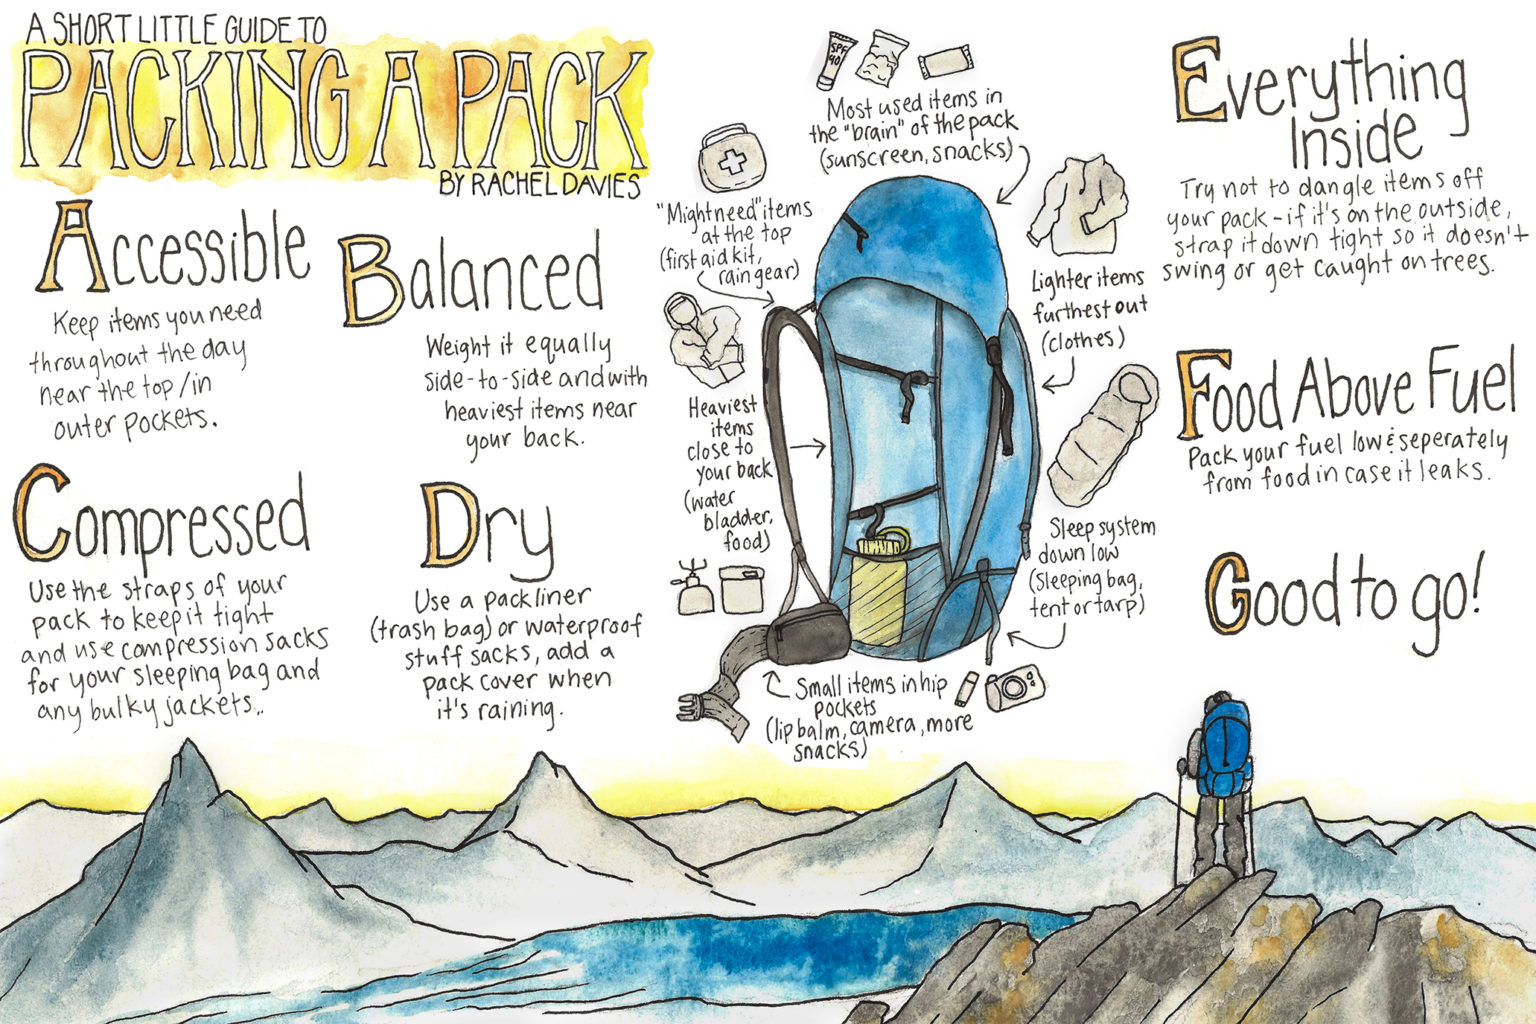 A SHORT LITTLE GUIDE TO
PACKING A PACK
BY RACHEL DAVIES
Accessible
Keep items you need
throughout the day
near the top/in
outer pockets.
Balanced
Weight it equally
side-to-side and with
heaviest items near
your back.
Compressed
Use the straps of your
pack to keep it tight
and use compression sacks
for your sleeping bag and
any bulky jackets..
Dry
Use a packliner
(trash bag) or waterproof
stuff sacks, add a
pack cover when
it's raining.
SPF
40
Most used items in
the "brain" of the pack
(sunscreen, snacks)
"Might need" items
at the top
(first aid kit,
rain gear)
Lighter items
furthest out
(clothes)
Heaviest
items
close to
your back
(water
bladder,
food)
Sleep system
down low
(sleeping bag,
tent or tarp)
Small items in hip
pockets
(lip balm, camera, more
snacks)
Everything
Inside
Try not to dangle items off
your pack - if it's on the outside,
strap it down tight so it doesn't
swing or get caught on trees.
Food Above Fuel
Pack your fuel low & seperately
from food in case it leaks.
Good to go!